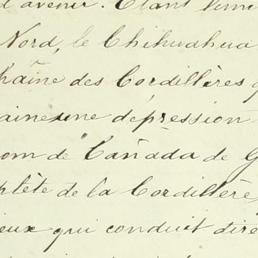 d'avenir. Étant limi
Nord, le Chihuahua
haîne des Cordillères
aines une dépression
om de "Cañada de G
plète de la Cordillère,
ieux qui conduit dire